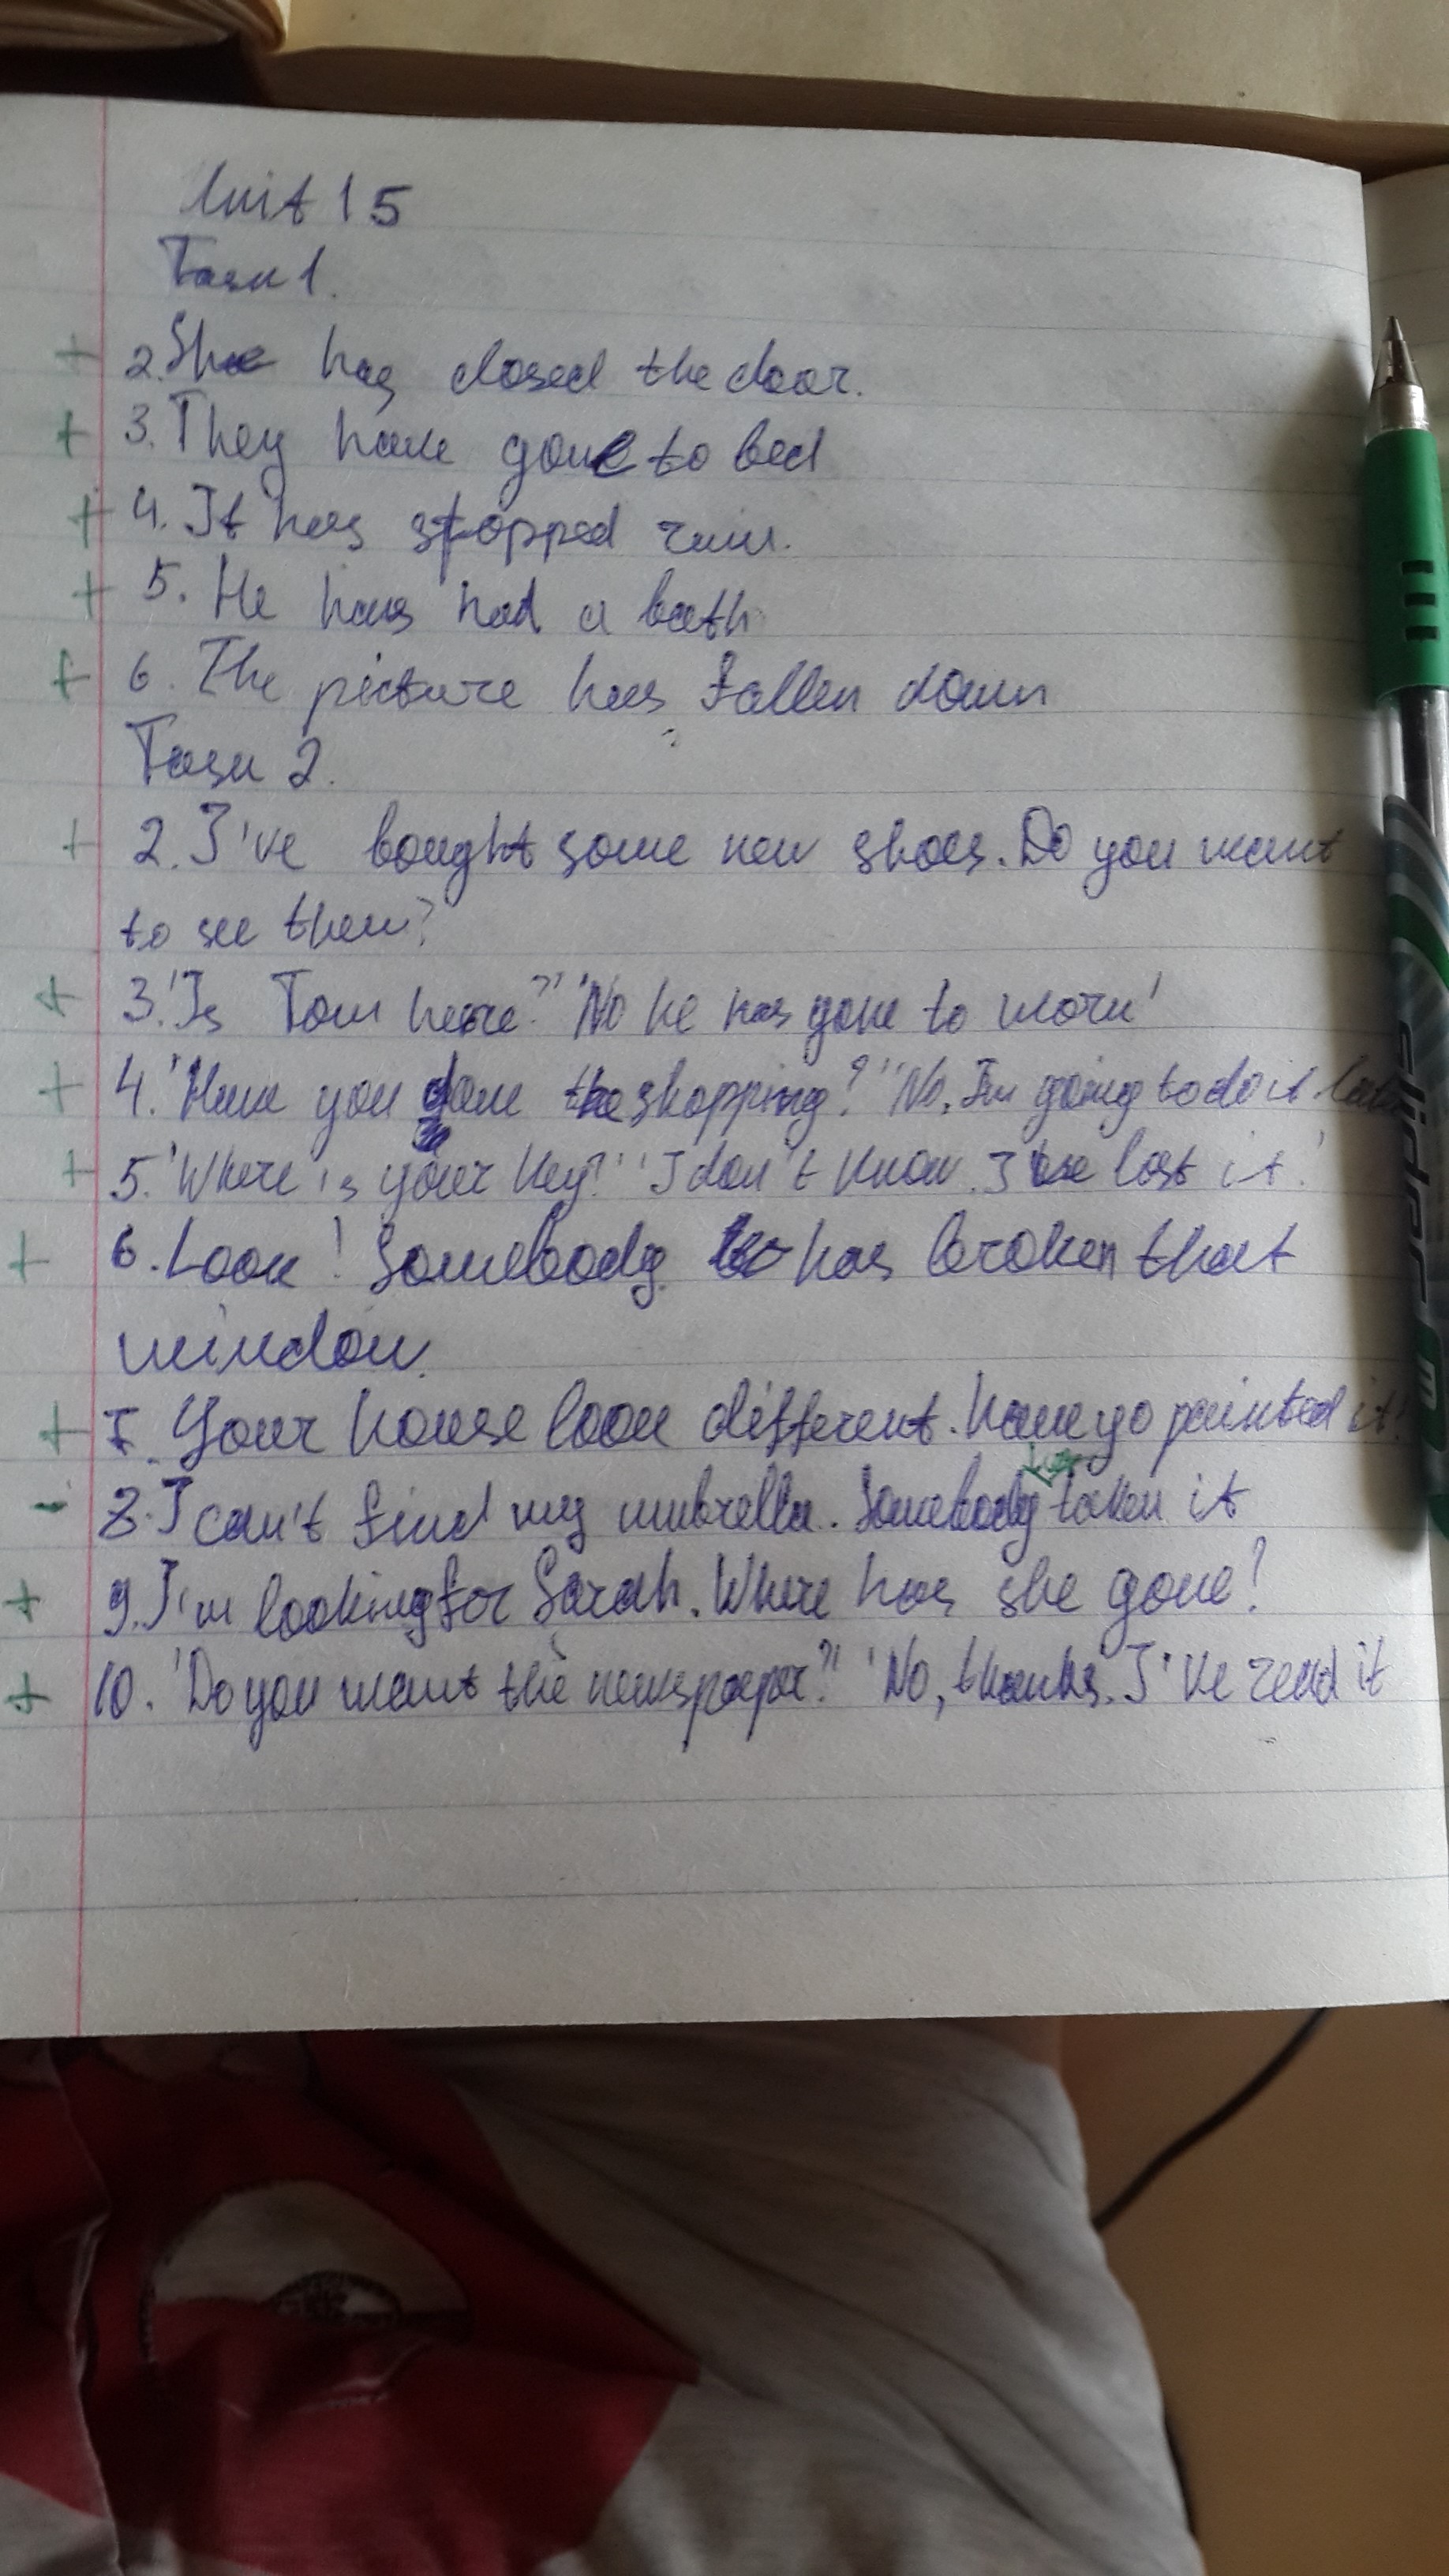 Unit 15
Task 1.
+ 2. She has closed the door.
+ 3. They have gone to bed
+ 4. It has stopped rain.
+ 5. He has had a bath
+ 6. The picture has fallen down
Task 2.
+ 2. I've bought some new shoes. Do you want
to see them?
+ 3. 'Is Tom here?' 'No he has gone to work'
+ 4. 'Have you done the shopping?' 'No, I'm going to do it later
+ 5. 'Where is your key?' 'I don't know. I've lost it.'
+ 6. Look! Somebody has broken that
window.
+ 7. Your house look different. Have yo painted it?
- 8. I can't find my umbrella. Somebody has taken it
+ 9. I'm looking for Sarah. Where has she gone?
+ 10. 'Do you want the newspaper?' 'No, thanks. I've read it